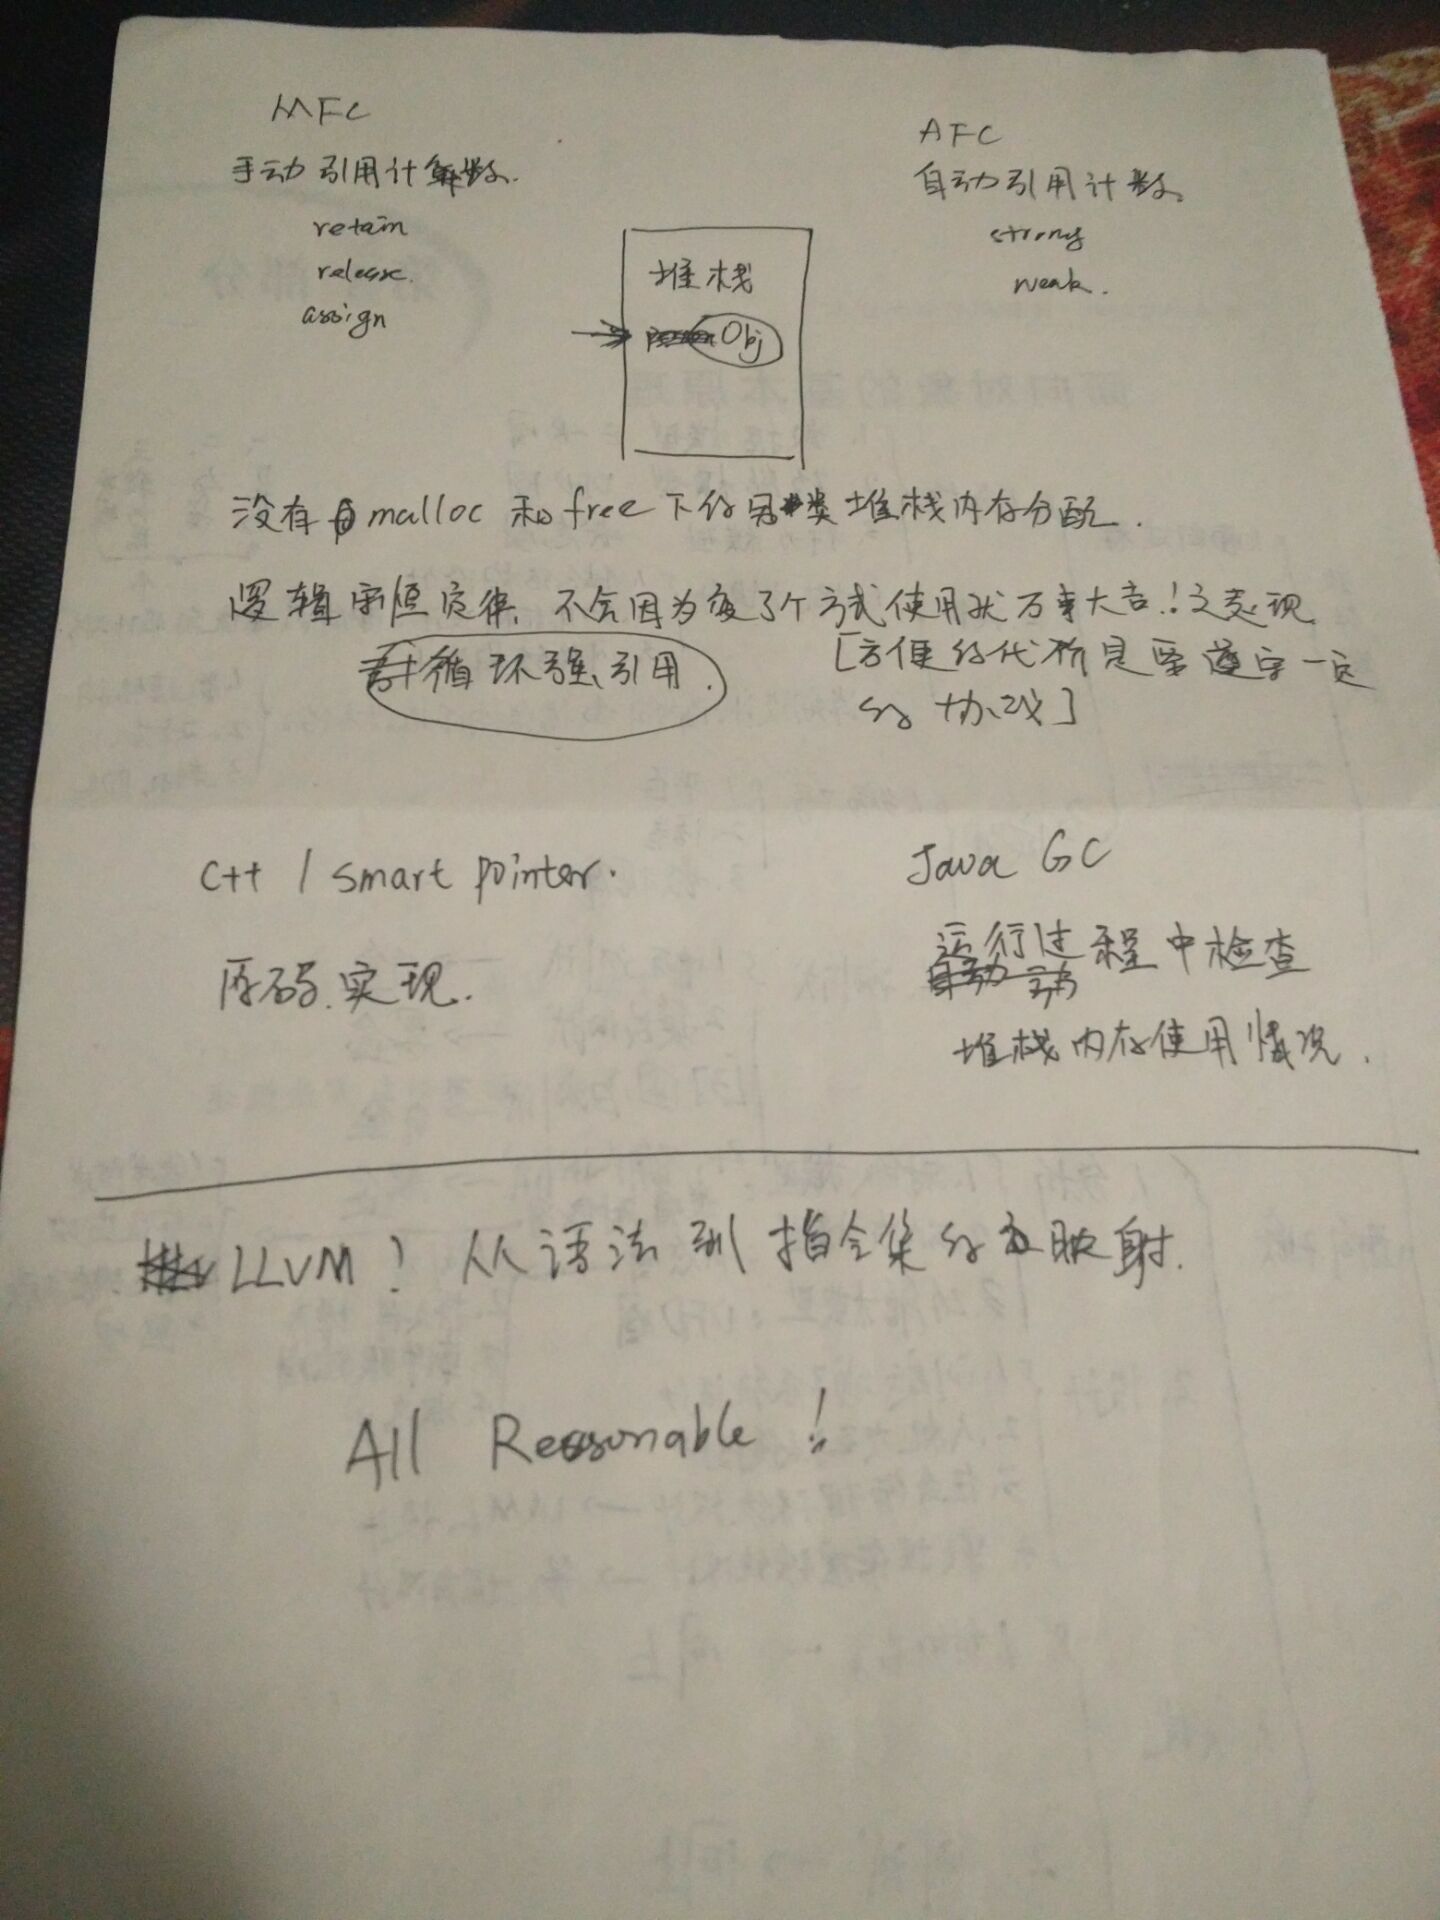 MFC
手动引用计数.
retain
release.
assign
AFC
自动引用计数。
strong
weak.
堆栈
Obj
没有 malloc 和 free 下的另类堆栈内存分配.
逻辑守恒定律, 不会因为变了个方式使用就万事大吉!之表现
循环强引用.
[方便的代价是要遵守一定
的协议]
C++ / smart pointer.
原码实现.
Java GC
运行过程中检查
堆栈内存使用情况.
LLVM! 从语法到指令集的映射.
All Reasonable!